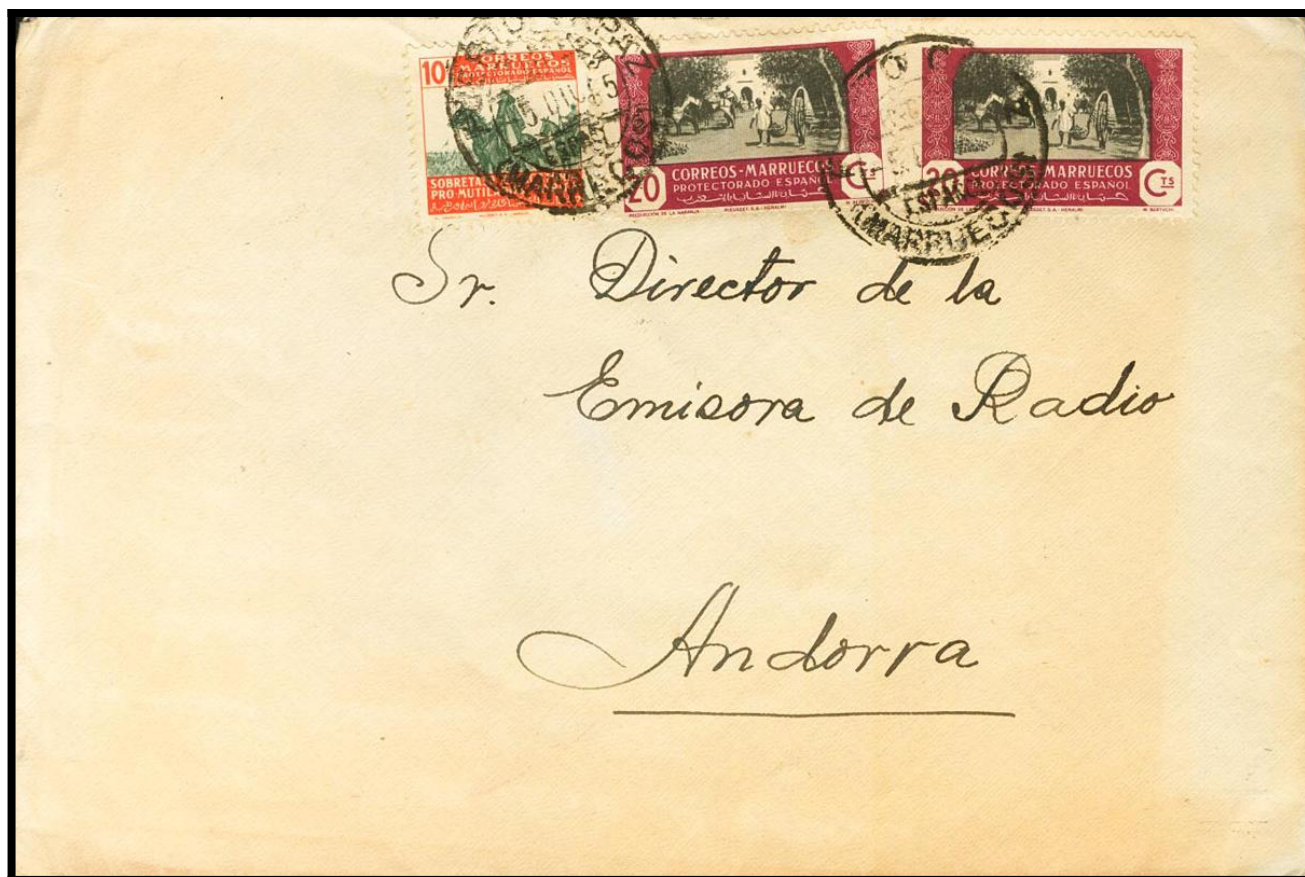 10
CORREOS
MARRUECOS
PROTECTORADO ESPAÑOL
PRO-MUTIL
20
CORREOS-MARRUECOS
PROTECTORADO ESPAÑOL
CTS
20
CORREOS-MARRUECOS
PROTECTORADO ESPAÑOL
CTS
(MARRUECOS)
Sr. Director de la
Emisora de Radio
Andorra